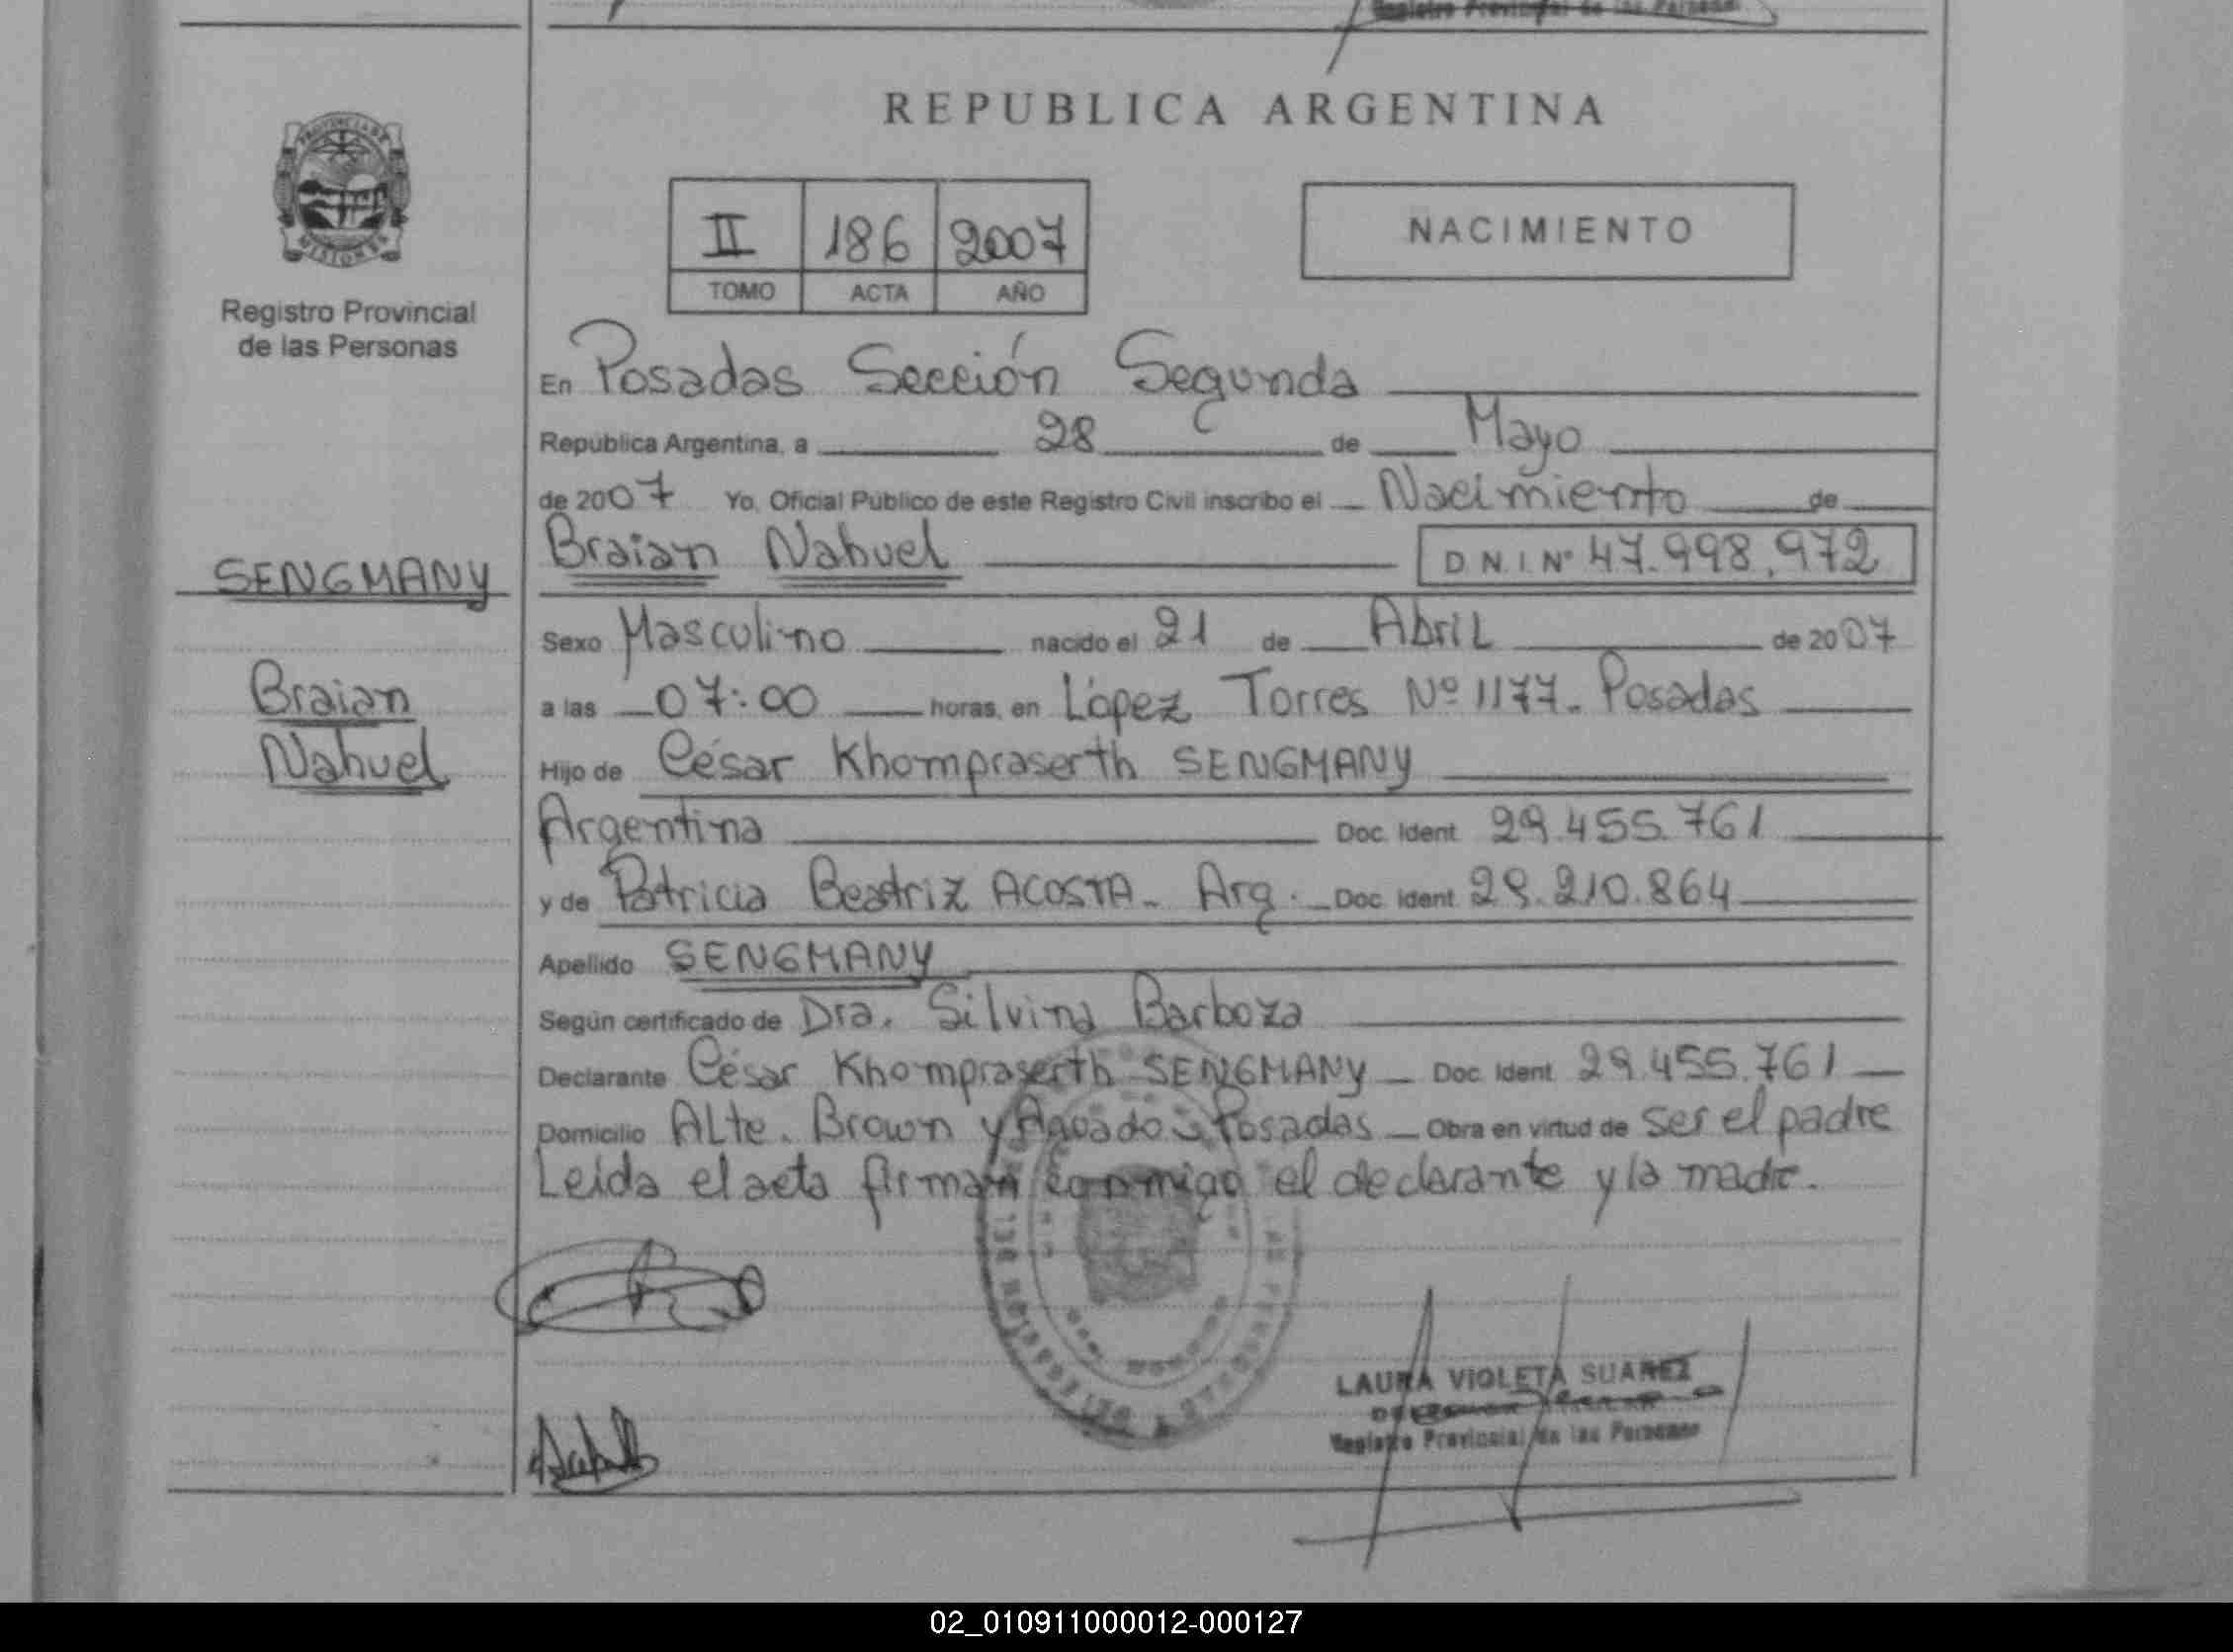 REPUBLICA ARGENTINA
PROVINCIA DE
MISIONES
Registro Provincial
de las Personas
II 186 2007
TOMO ACTA AÑO
NACIMIENTO
En Posadas Sección Segunda
Republica Argentina, a 28 de Mayo
de 2007 Yo, Oficial Público de este Registro Civil inscribo el Nacimiento de
SENGMANY
Braian Nahuel D.N.I. Nº 47.998.972
Sexo Masculino nacido el 21 de Abril de 2007
Braian
Nahuel
a las 07:00 horas, en López Torres Nº 1177. Posadas
Hijo de César Khompraserth SENGMANY
Argentina Doc. Ident. 29.455.761
y de Patricia Beatriz ACOSTA. Arg. Doc. Ident. 29.210.864
Apellido SENGMANY
Según certificado de Dra. Silvina Barboza
Declarante César Khompraserth SENGMANY Doc. Ident. 29.455.761
Domicilio Alte. Brown y Aguado Posadas Obra en virtud de ser el padre
Leida el acta firman conmigo el declarante y la madre.
LAURA VIOLETA SUAREZ
Registro Provincial de las Personas
02_010911000012-000127